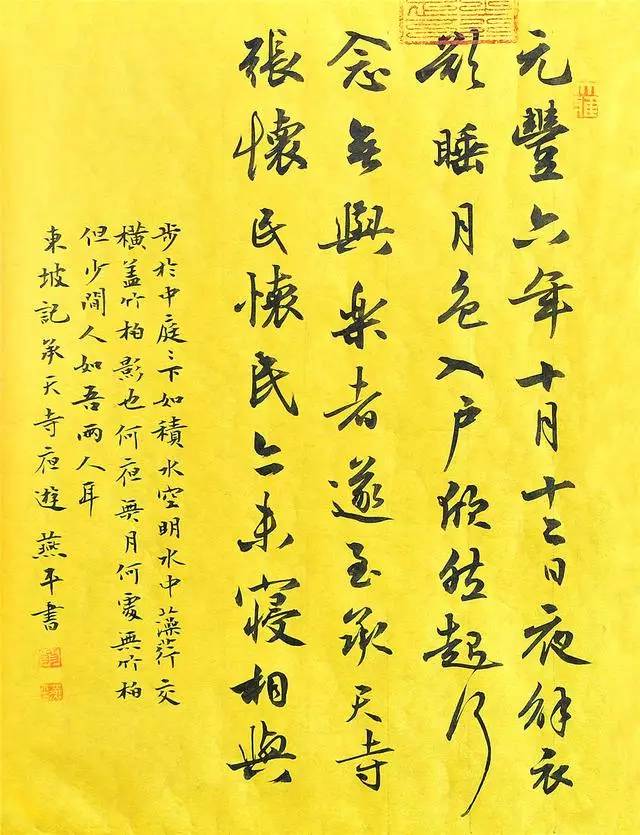 元豐六年十月十二日夜解衣
欲睡月色入户欣然起行
念無與樂者遂至承天寺
張懷民懷民亦未寢相與
步於中庭〻下如積水空明水中藻荇交
橫蓋竹柏影也何夜無月何處無竹柏
但少閒人如吾兩人耳
東坡記承天寺夜遊 燕平書